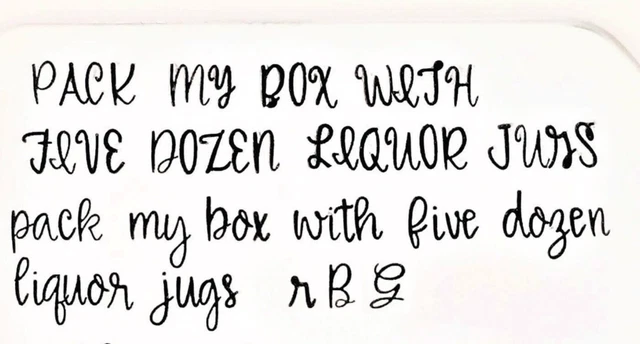 PACK MY BOX WITH
FIVE DOZEN LIQUOR JUGS
pack my box with five dozen
liquor jugs r B G